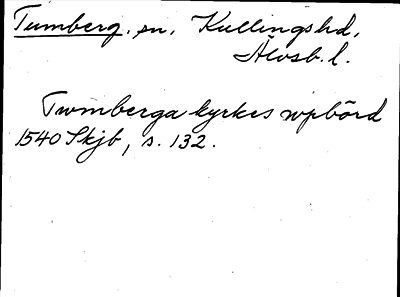 Tumberg, sn, Kullingshd,
Älvsb. l.
Twmberga kyrkes wpbörd
1540 Skjb, s. 132.